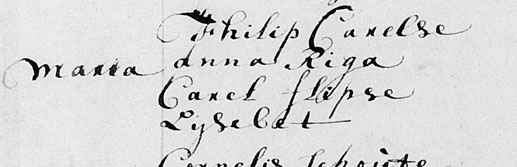 Philip Carelse
Maria Anna Riga
Carel flipse
Lijsebet
Cornelis Schoute